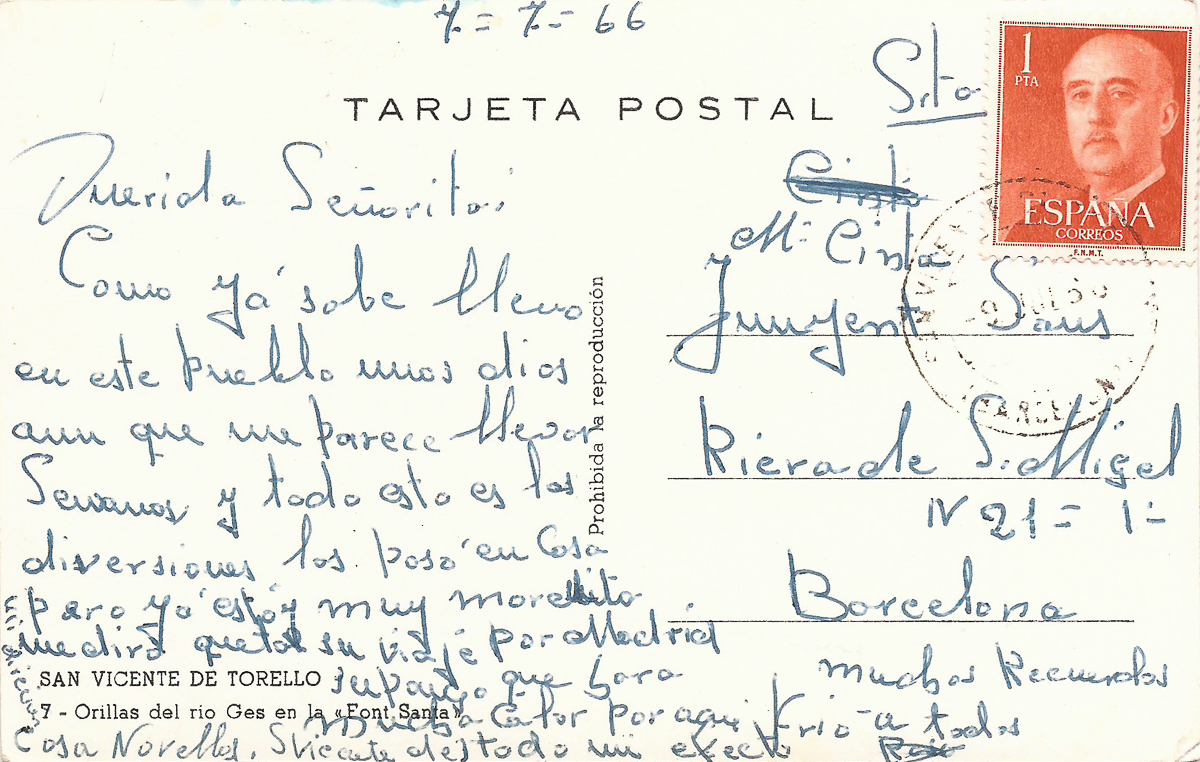 7 - 7 - 66
TARJETA POSTAL
Srta
1
PTA
ESPAÑA
CORREOS
F.N.M.T.
Querida Señorita:
Como yá sabe llevo
en este pueblo unos dias
aun que me parece llevar
Semanas y todo esto es las
diversiones las paso en Casa
pero yá estóy muy morenita
me dirá que tal su viaje por Madrid
supongo que hara
mucha Calor por aqui Frio
SAN VICENTE DE TORELLO
7 - Orillas del rio Ges en la «Font Santa»
Casa Norellas, S Vicente
mi
Prohibida la reproducción
Cinta
Mª Cinta
Junyent Sans
Riera de S. Migel
N 21 = 1 -
Barcelona
muchos Recuerdos
a todos